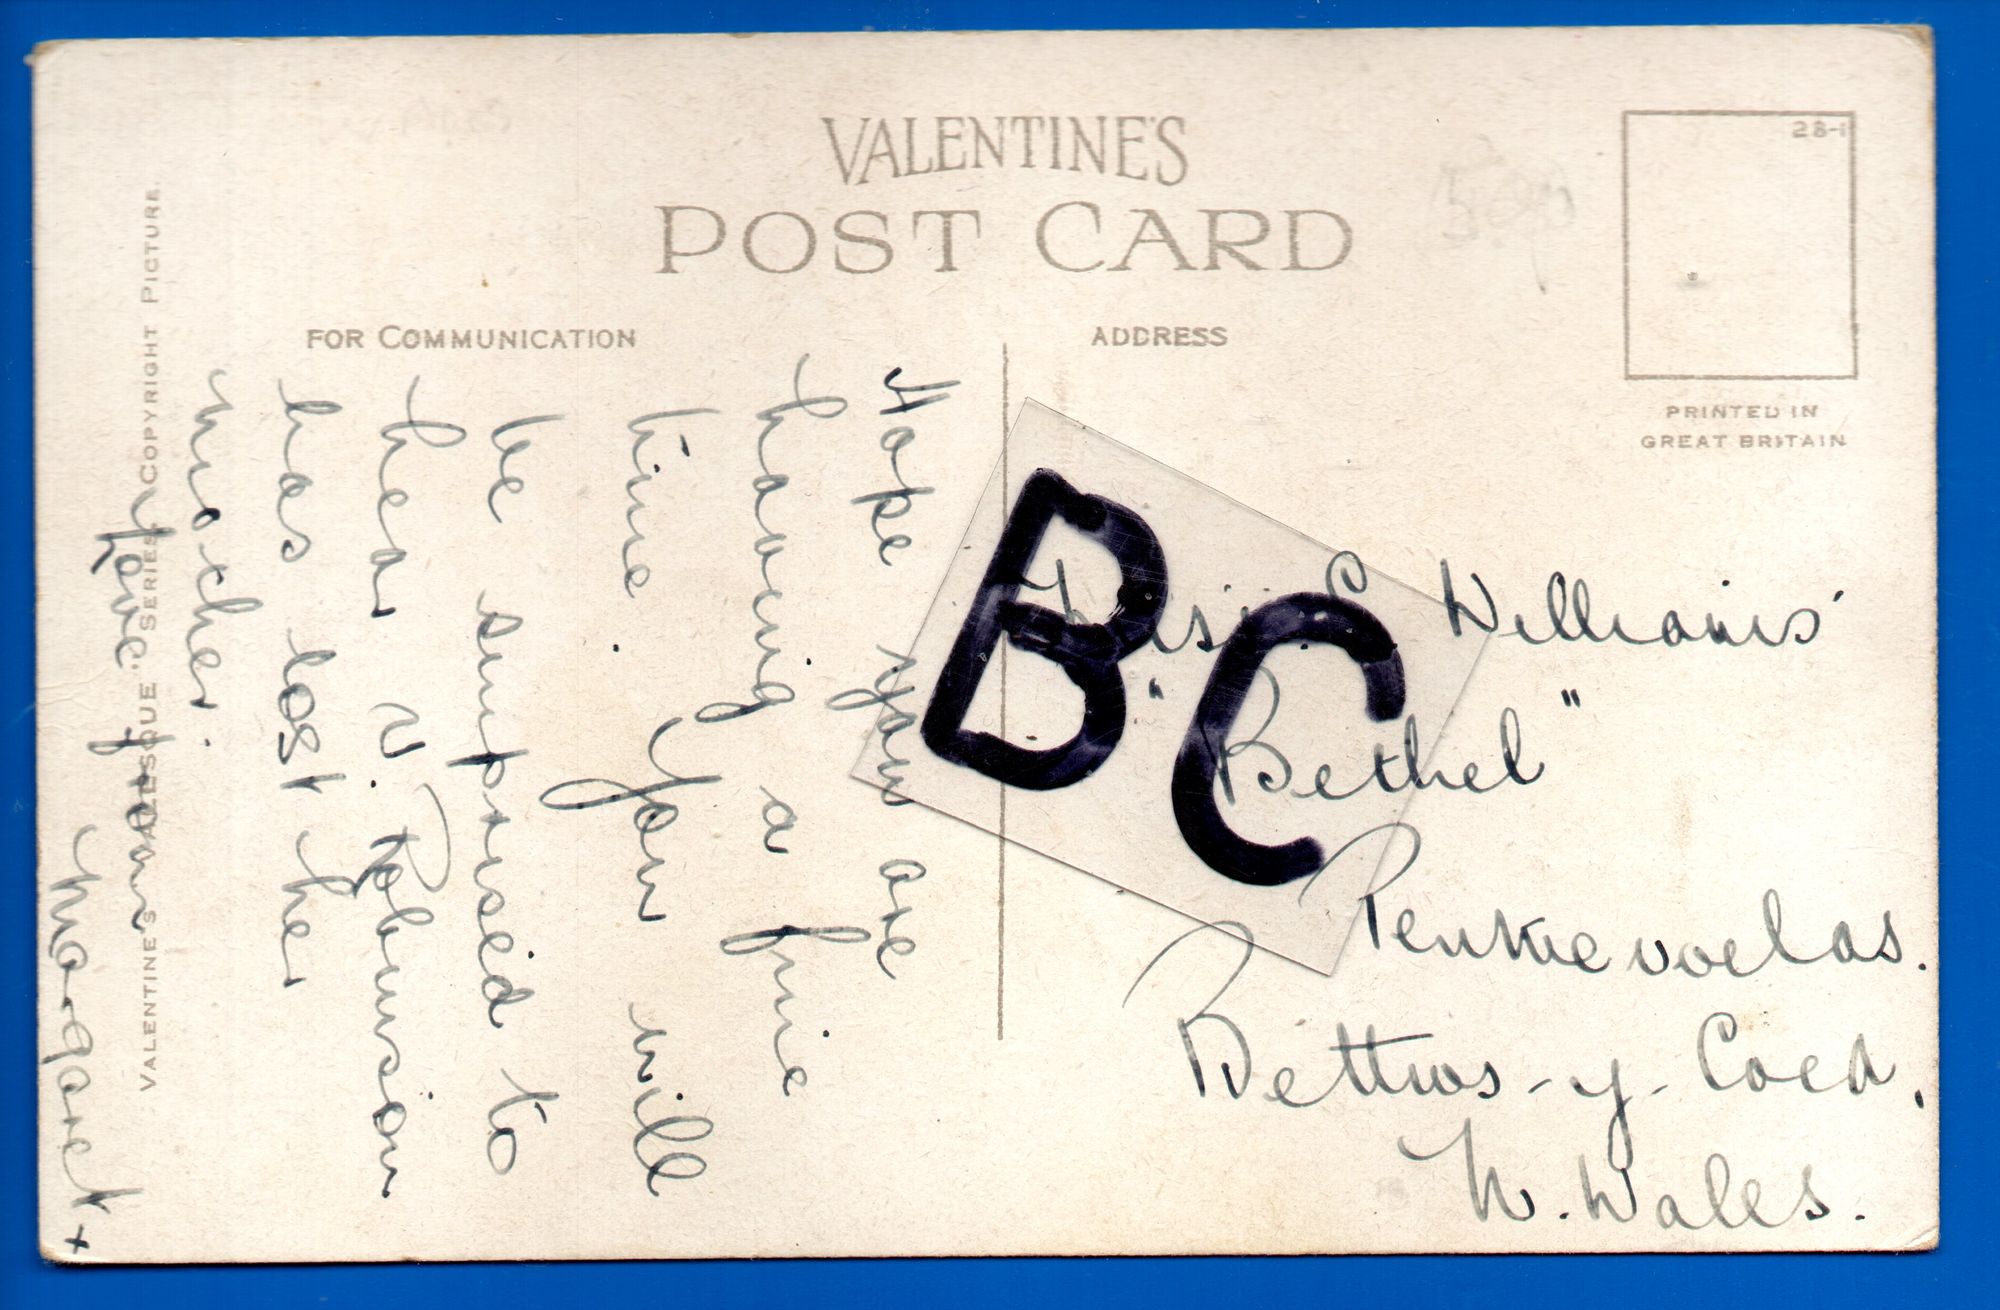 VALENTINE'S
POST CARD
28-1
FOR COMMUNICATION
ADDRESS
PRINTED IN
GREAT BRITAIN
VALENTINE'S "VALESQUE" SERIES. COPYRIGHT PICTURE.
Hope you are
having a fine
time. You will
be suprised to
hear V. Robinson
has lost her
mother.
Love from
Margaret x
BC
C Williams
"Bethel"
Voelas.
Bettws-y-Coed,
N. Wales.